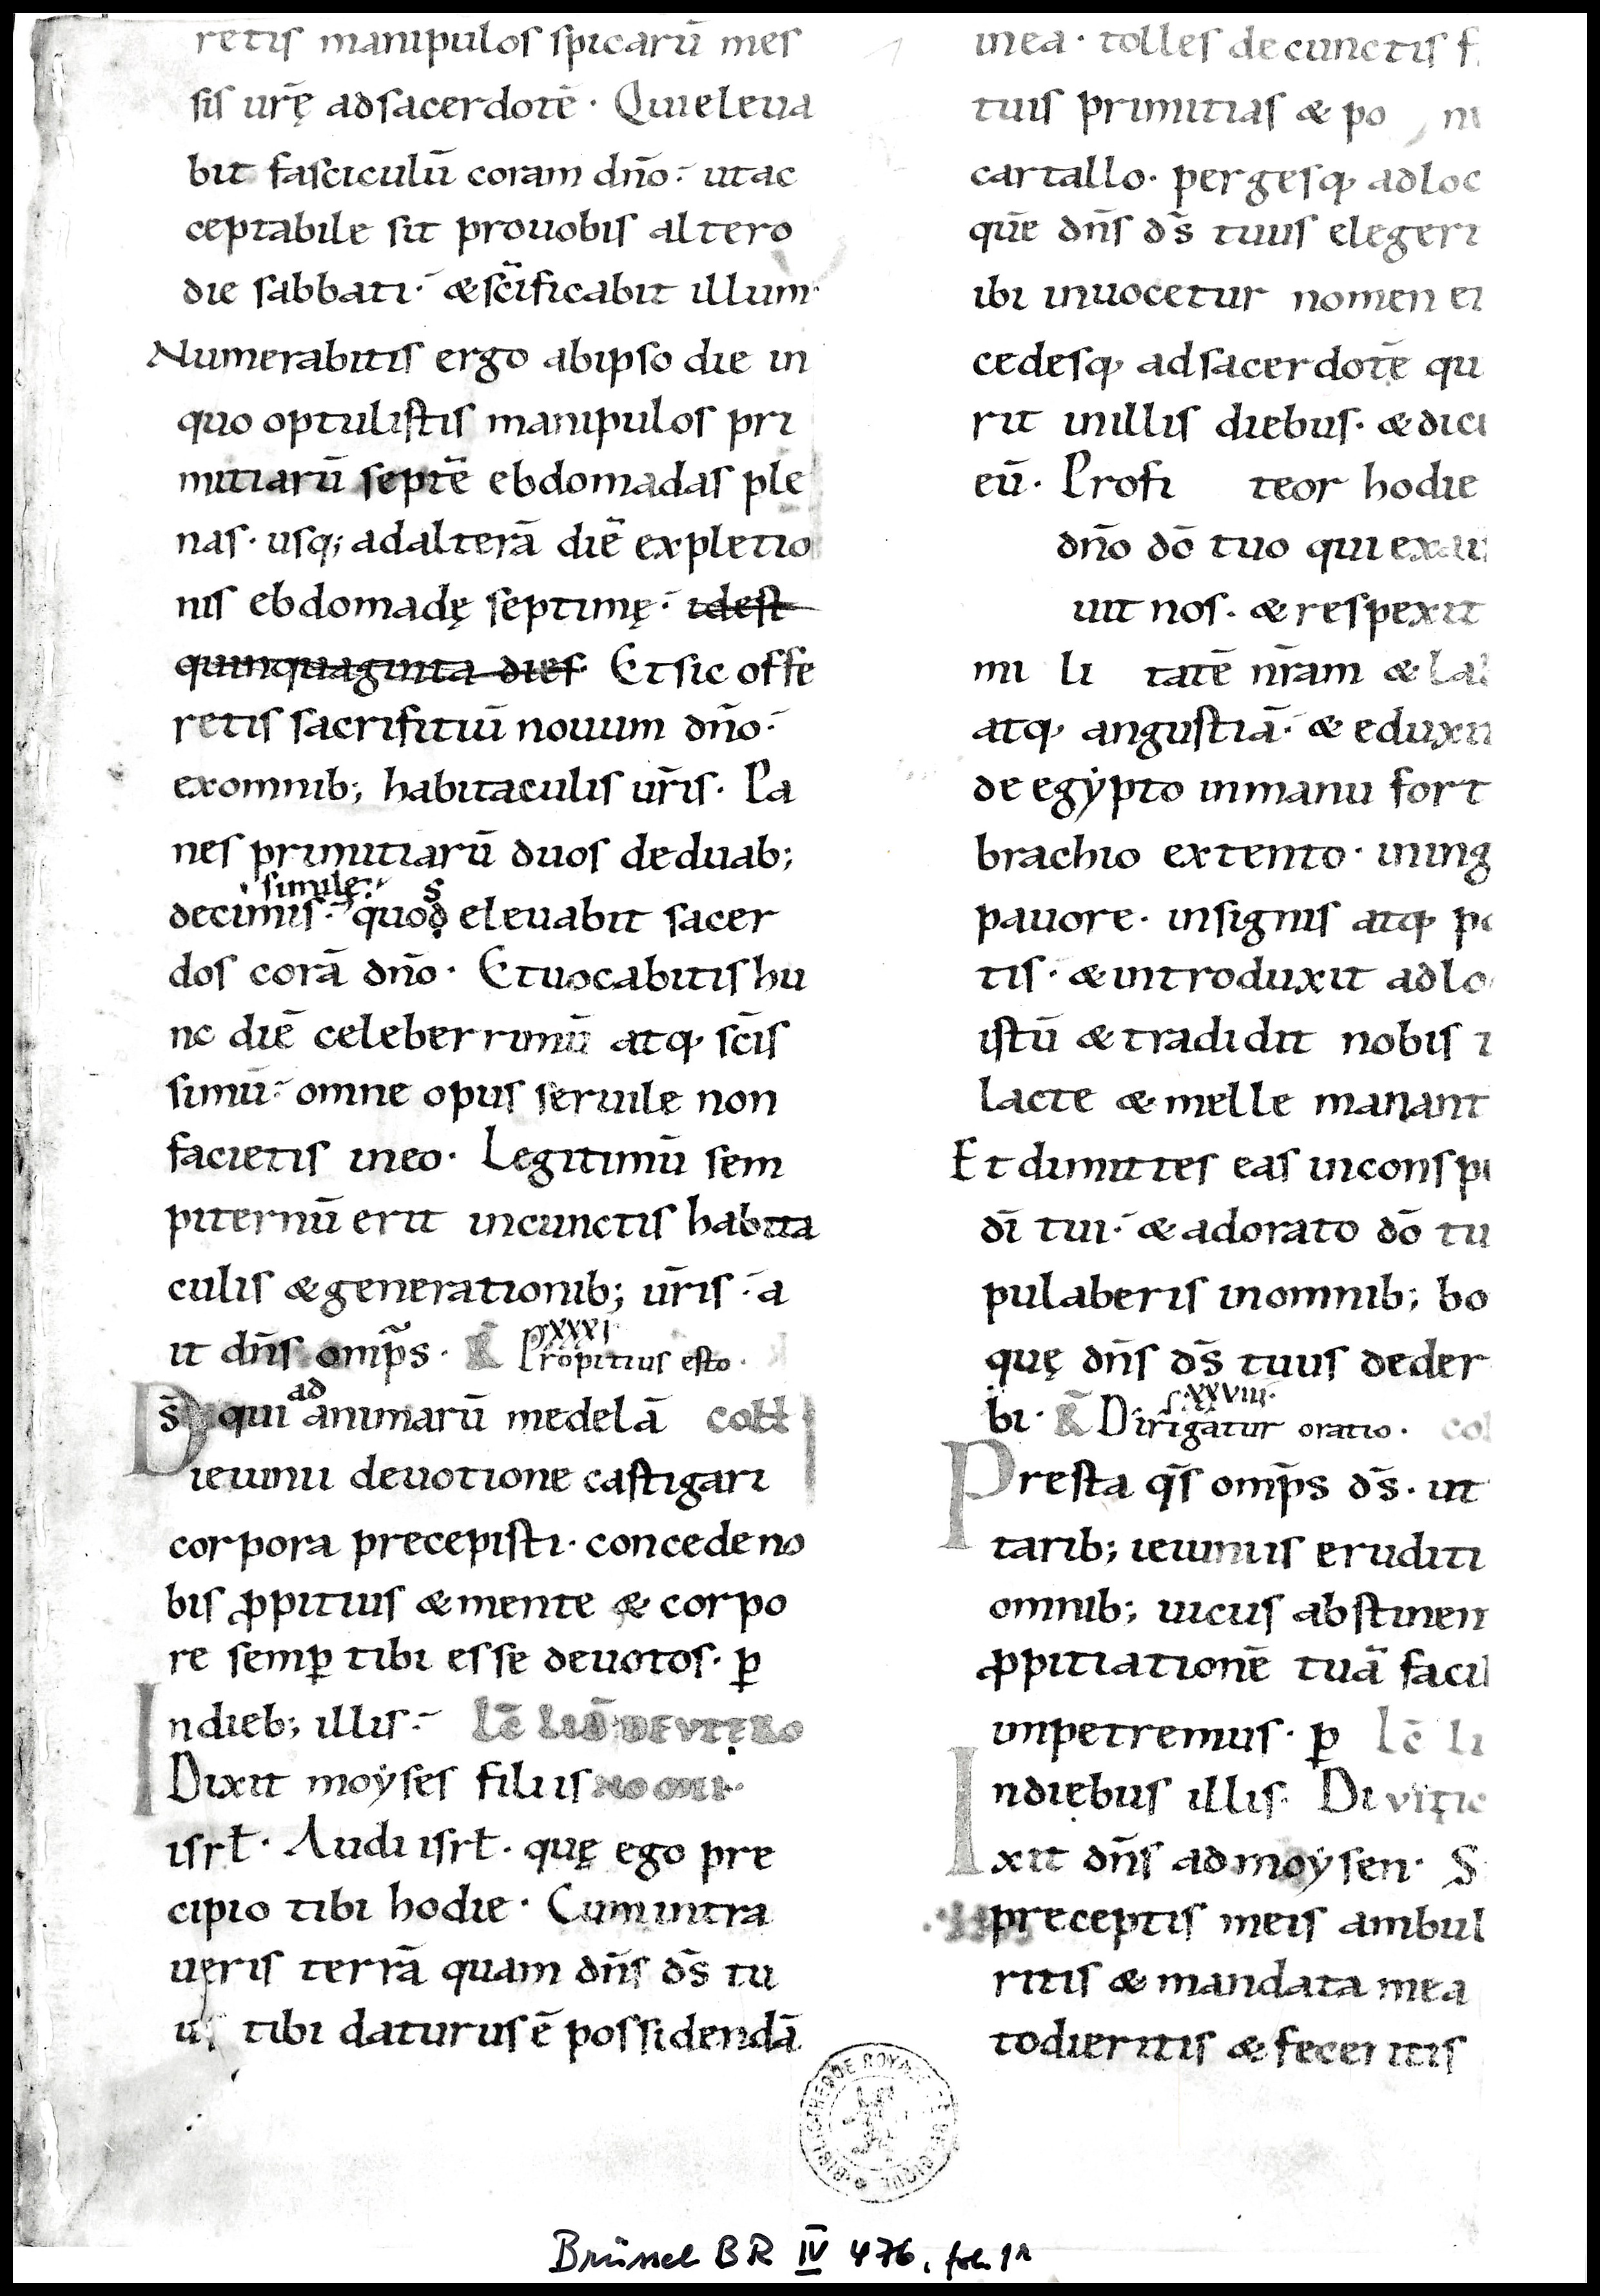 retiſ manipuloſ ſpicarū meſ
ſiſ ur̄ę adſacerdotē · Quieleua
bit faſciculū coram dn̄o · utac
ceptabile ſit prouobiſ altero
die ſabbati · &ſc̄ificabit illum ·
Numerabitiſ ergo abipſo die in
quo optuliſtiſ manipuloſ pri
mitiarū ſeptē ebdomadaſ ple
naſ · uſq; adalterā diē expletio
niſ ebdomadę ſeptimę · ideſt
quinquaginta dieſ · Etſic offe
retiſ ſacrifitiū nouum dn̄o ·
exomnib; habitaculiſ ur̄iſ · Pa
neſ primitiarū duoſ deduab;
ſimilę ſ
decimiſ · quod eleuabit ſacer
doſ corā dn̄o · Etuocabitiſ hu
nc diē celeberrimū atq· ſc̄iſ
ſimū · omne opuſ ſeruile non
facietiſ ineo · Legitimū ſem
piternū erit incunctiſ habita
culiſ &generationib; ur̄iſ · a
it dn̄ſ omp̄s · R̄ Propitiuſ eſto ·
pſ XXXI
ad
Ds̄ qui animarū medelā coll
ieiunii deuotione caſtigari
corpora precepiſti · concede no
biſ ꝓpitiuſ &mente & corpo
re ſemꝑ tibi eſſe deuotoſ · ꝑ
Indieb; illiſ · Lc̄ LIB̄ DEVTERO
Dixit moẏſeſ filiiſ NOMII ·
iſrł · Audi iſrł · quę ego pre
cipio tibi hodie · Cumintra
ueriſ terrā quam dn̄ſ ds̄ tu
uſ tibi daturuſē poſſidendā
inea · tolleſ decunctiſ f
tuiſ primitiaſ & po ni
cartallo · pergeſq· adloc
quē dn̄ſ ds̄ tuuſ elegeri
ibi inuocetur nomen ei
cedeſq· adſacerdotē qu
rit inilliſ diebuſ · &dici
eū · Profi teor hodie
dn̄o dō tuo qui exau
uit noſ · &reſpexit
mi li tatē nr̄am & lab
atq· anguſtiā · & eduxit
de egẏpto inmanu fort
brachio extento · ining
pauore · inſigniſ atq· po
tiſ · &introduxit adlo
iſtū &tradidit nobiſ t
lacte &melle manant
Et dimitteſ eaſ inconſpi
dī tui · &adorato dō tu
pulaberiſ inomnib; bo
quę dn̄ſ ds̄ tuuſ deder
bi · R̄ Dirigatur oratio · col
XXVIII ·
Preſta qſ̄ omp̄s ds̄ · ut
tarib; ieiuniiſ eruditi
omnib; uiciiſ abſtinen
ꝓpitiationē tuā facil
impetremuſ · ꝑ Lc̄ Li
Indiebuſ illiſ · Di vitic
xit dn̄ſ admoẏſen · S
preceptiſ meiſ ambul
ritiſ &mandata mea
todieritiſ &feceritiſ
BIBLIOTHEQUE ROYALE DE BELGIQUE
Brüssel BR IV 476, fol. 1r